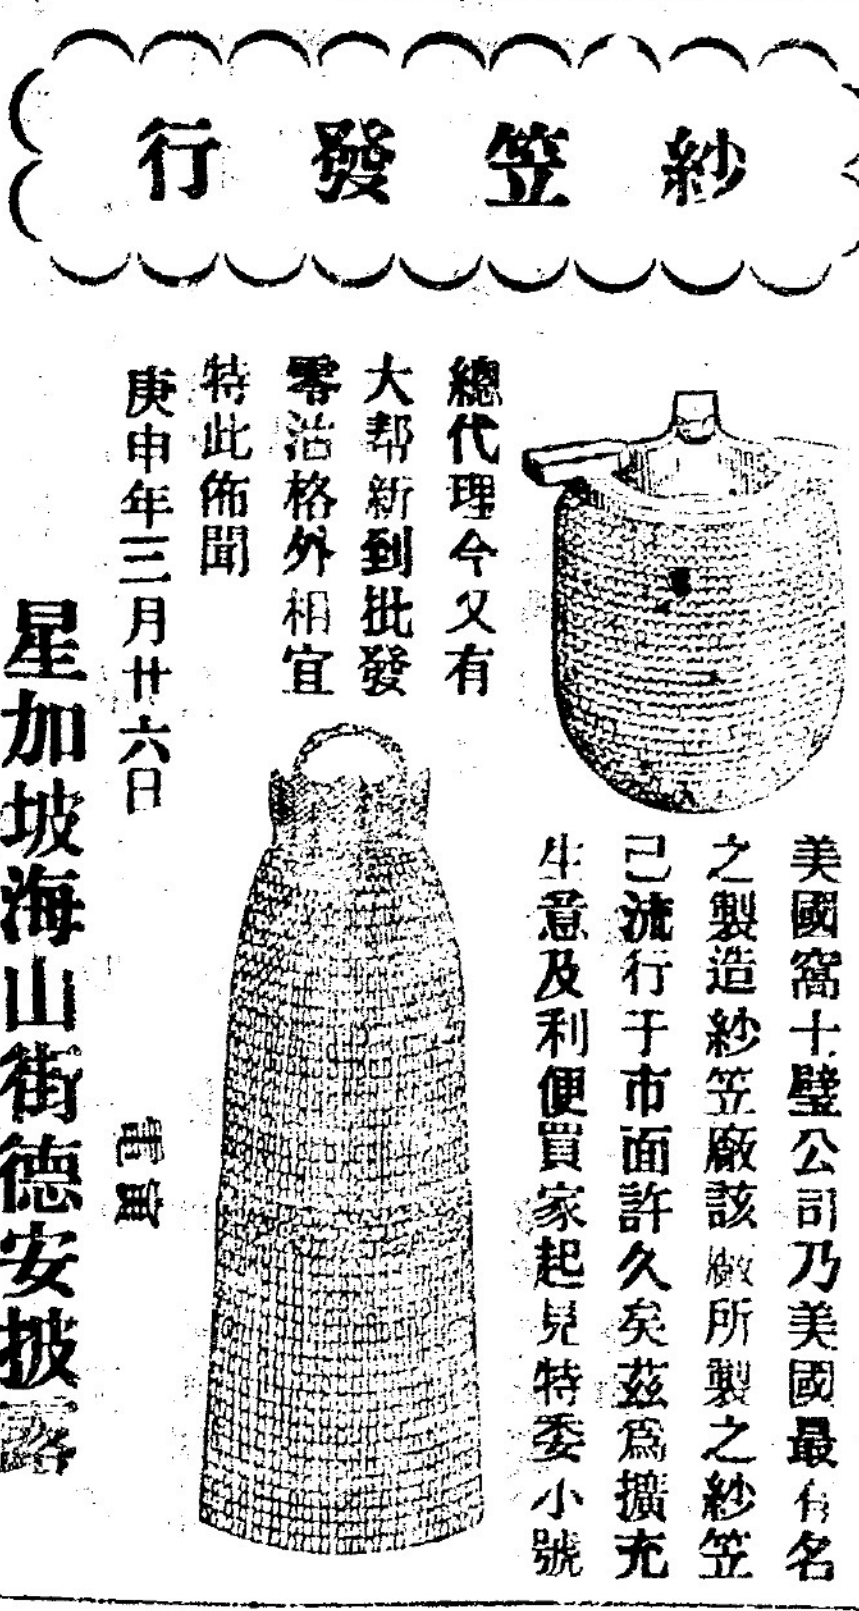 紗笠發行
美國窩士璧公司乃美國最有名
之製造紗笠廠該廠所製之紗笠
已流行于市面許久矣茲爲擴充
生意及利便買家起見特委小號
總代理今又有
大帮新到批發
零沽格外相宜
特此佈聞
庚申年三月廿六日
星加坡海山街德安披露